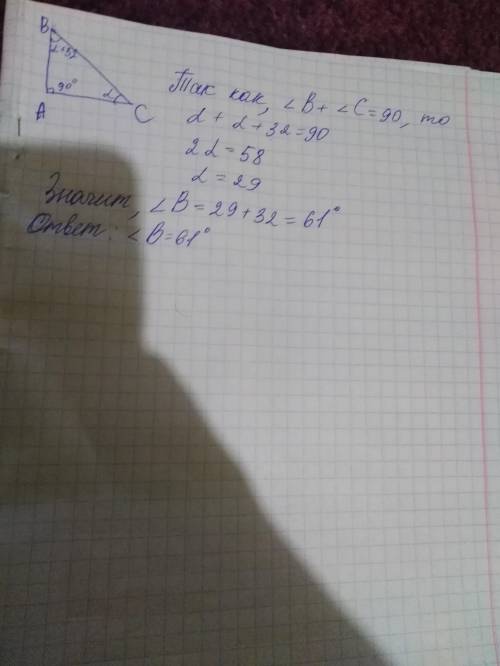 B
α+32
90°
α
A
C
Так как, ∠B + ∠C = 90, то
α + α + 32 = 90
2α = 58
α = 29
Значит, ∠B = 29 + 32 = 61°
Ответ: ∠B = 61°